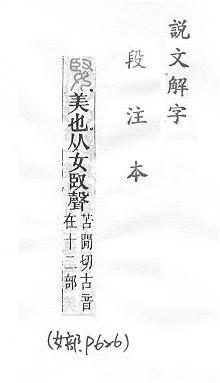 說文解字
段注本
美也从女臤聲苦閒切古音
在十二部
(女部.P626)